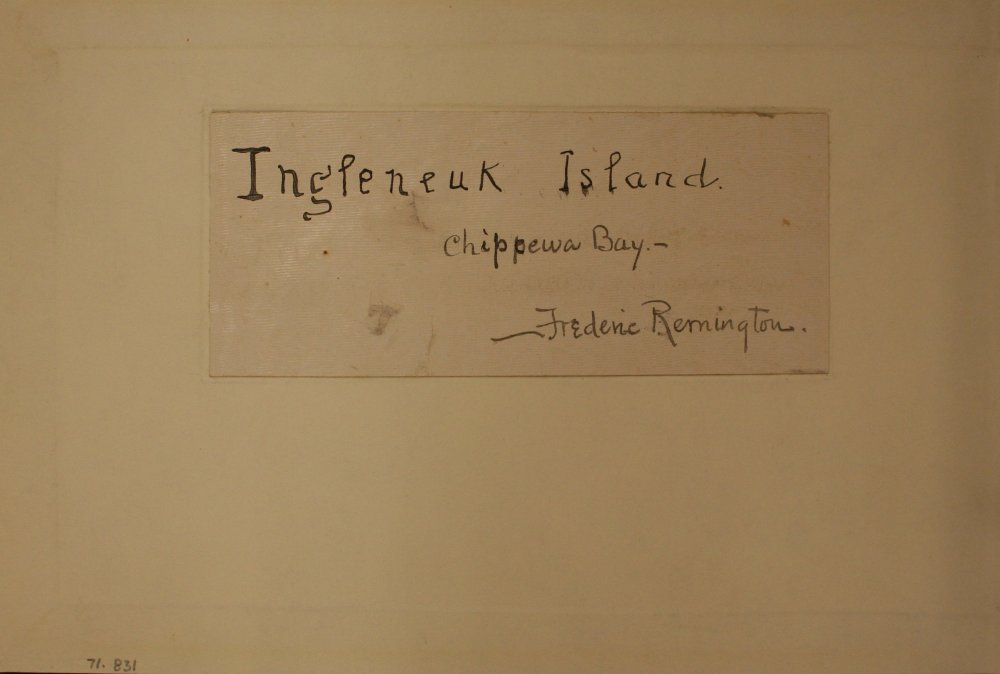 Ingleneuk Island.
Chippewa Bay.–
—Frederic Remington.
71. 831